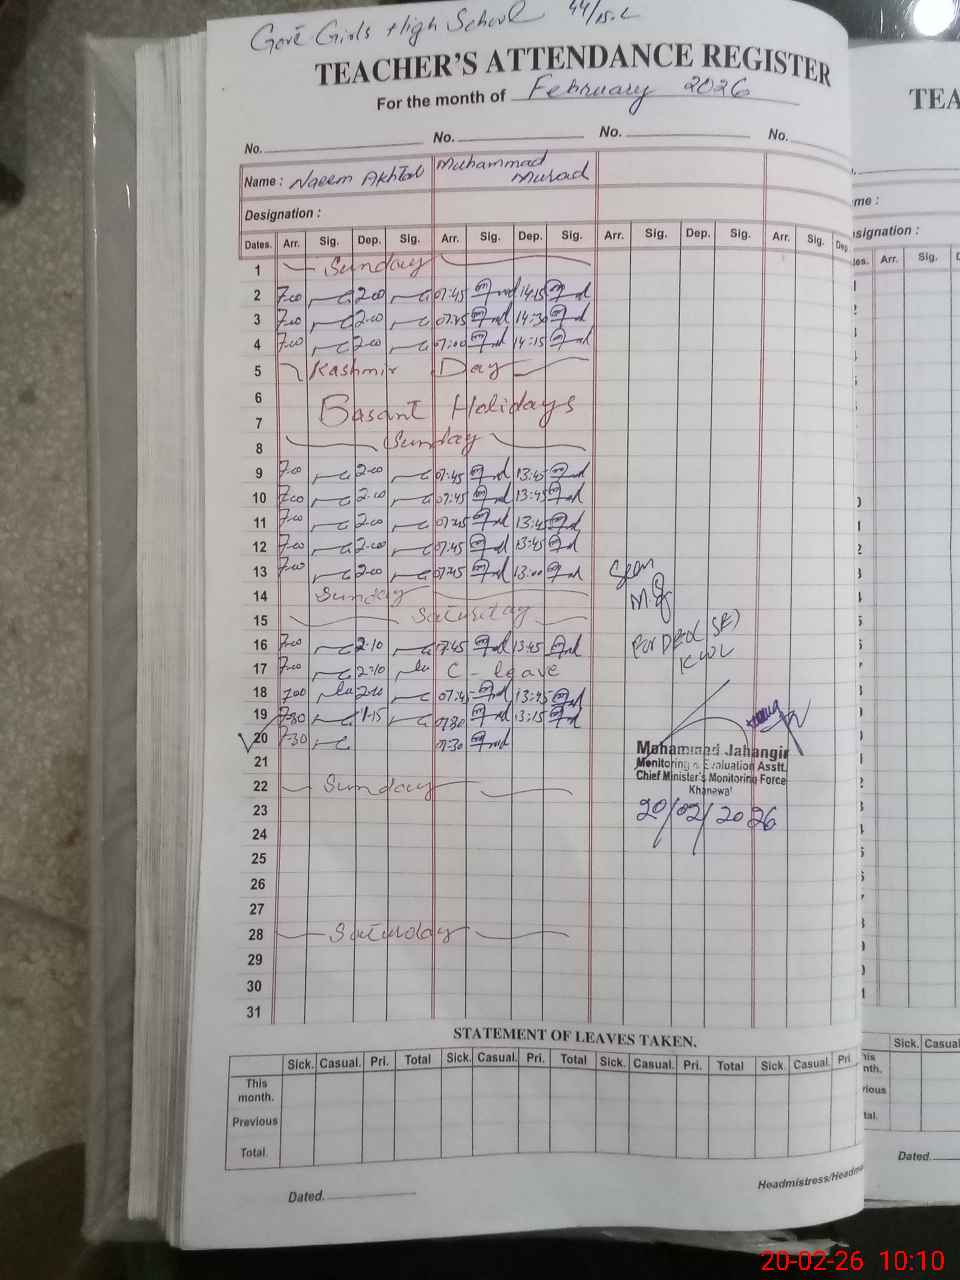 Govt Girls High School 44/15-L
TEACHER'S ATTENDANCE REGISTER
For the month of February 2026
No. No. No. No.
Name : Naeem Akhtar Muhammad Murad
Designation :
Dates. Arr. Sig. Dep. Sig. Arr. Sig. Dep. Sig. Arr. Sig. Dep. Sig. Arr. Sig. Dep.
1 Sunday
2 7.00 2.00 07:45 14:15
3 7.00 2.00 07:45 14:30
4 7.00 2.00 07:00 14:15
5 Kashmir Day
6
7 Basant Holidays
8 Sunday
9 7.00 2.00 07:45 13:45
10 7.00 2.00 07:45 13:45
11 7.00 2.00 07:45 13:45
12 7.00 2.00 07:45 13:45
13 7.00 2.00 07:45 13:00
14 Sunday
15 Saturday
16 7.00 2.10 07:45 13:45
17 7.00 2:10 C-leave
18 7.00 2.10 07:45 13:45
19 7.30 1.15 07:30 13:15
20 7.30 07:30
21
22 Sunday
23
24
25
26
27
28 Saturday
29
30
31
Seen
For DEO (SE)
KWL
Mohammad Jahangir
Monitoring & Evaluation Asstt.
Chief Minister's Monitoring Force
Khanewal
20/02/2026
STATEMENT OF LEAVES TAKEN.
Sick. Casual. Pri. Total Sick. Casual. Pri. Total Sick. Casual. Pri. Total Sick. Casual. Pri.
This month.
Previous
Total.
Dated.
Headmistress/Headm
TEA
Arr. Sig.
Sick. Casua
Dated.
20-02-26 10:10